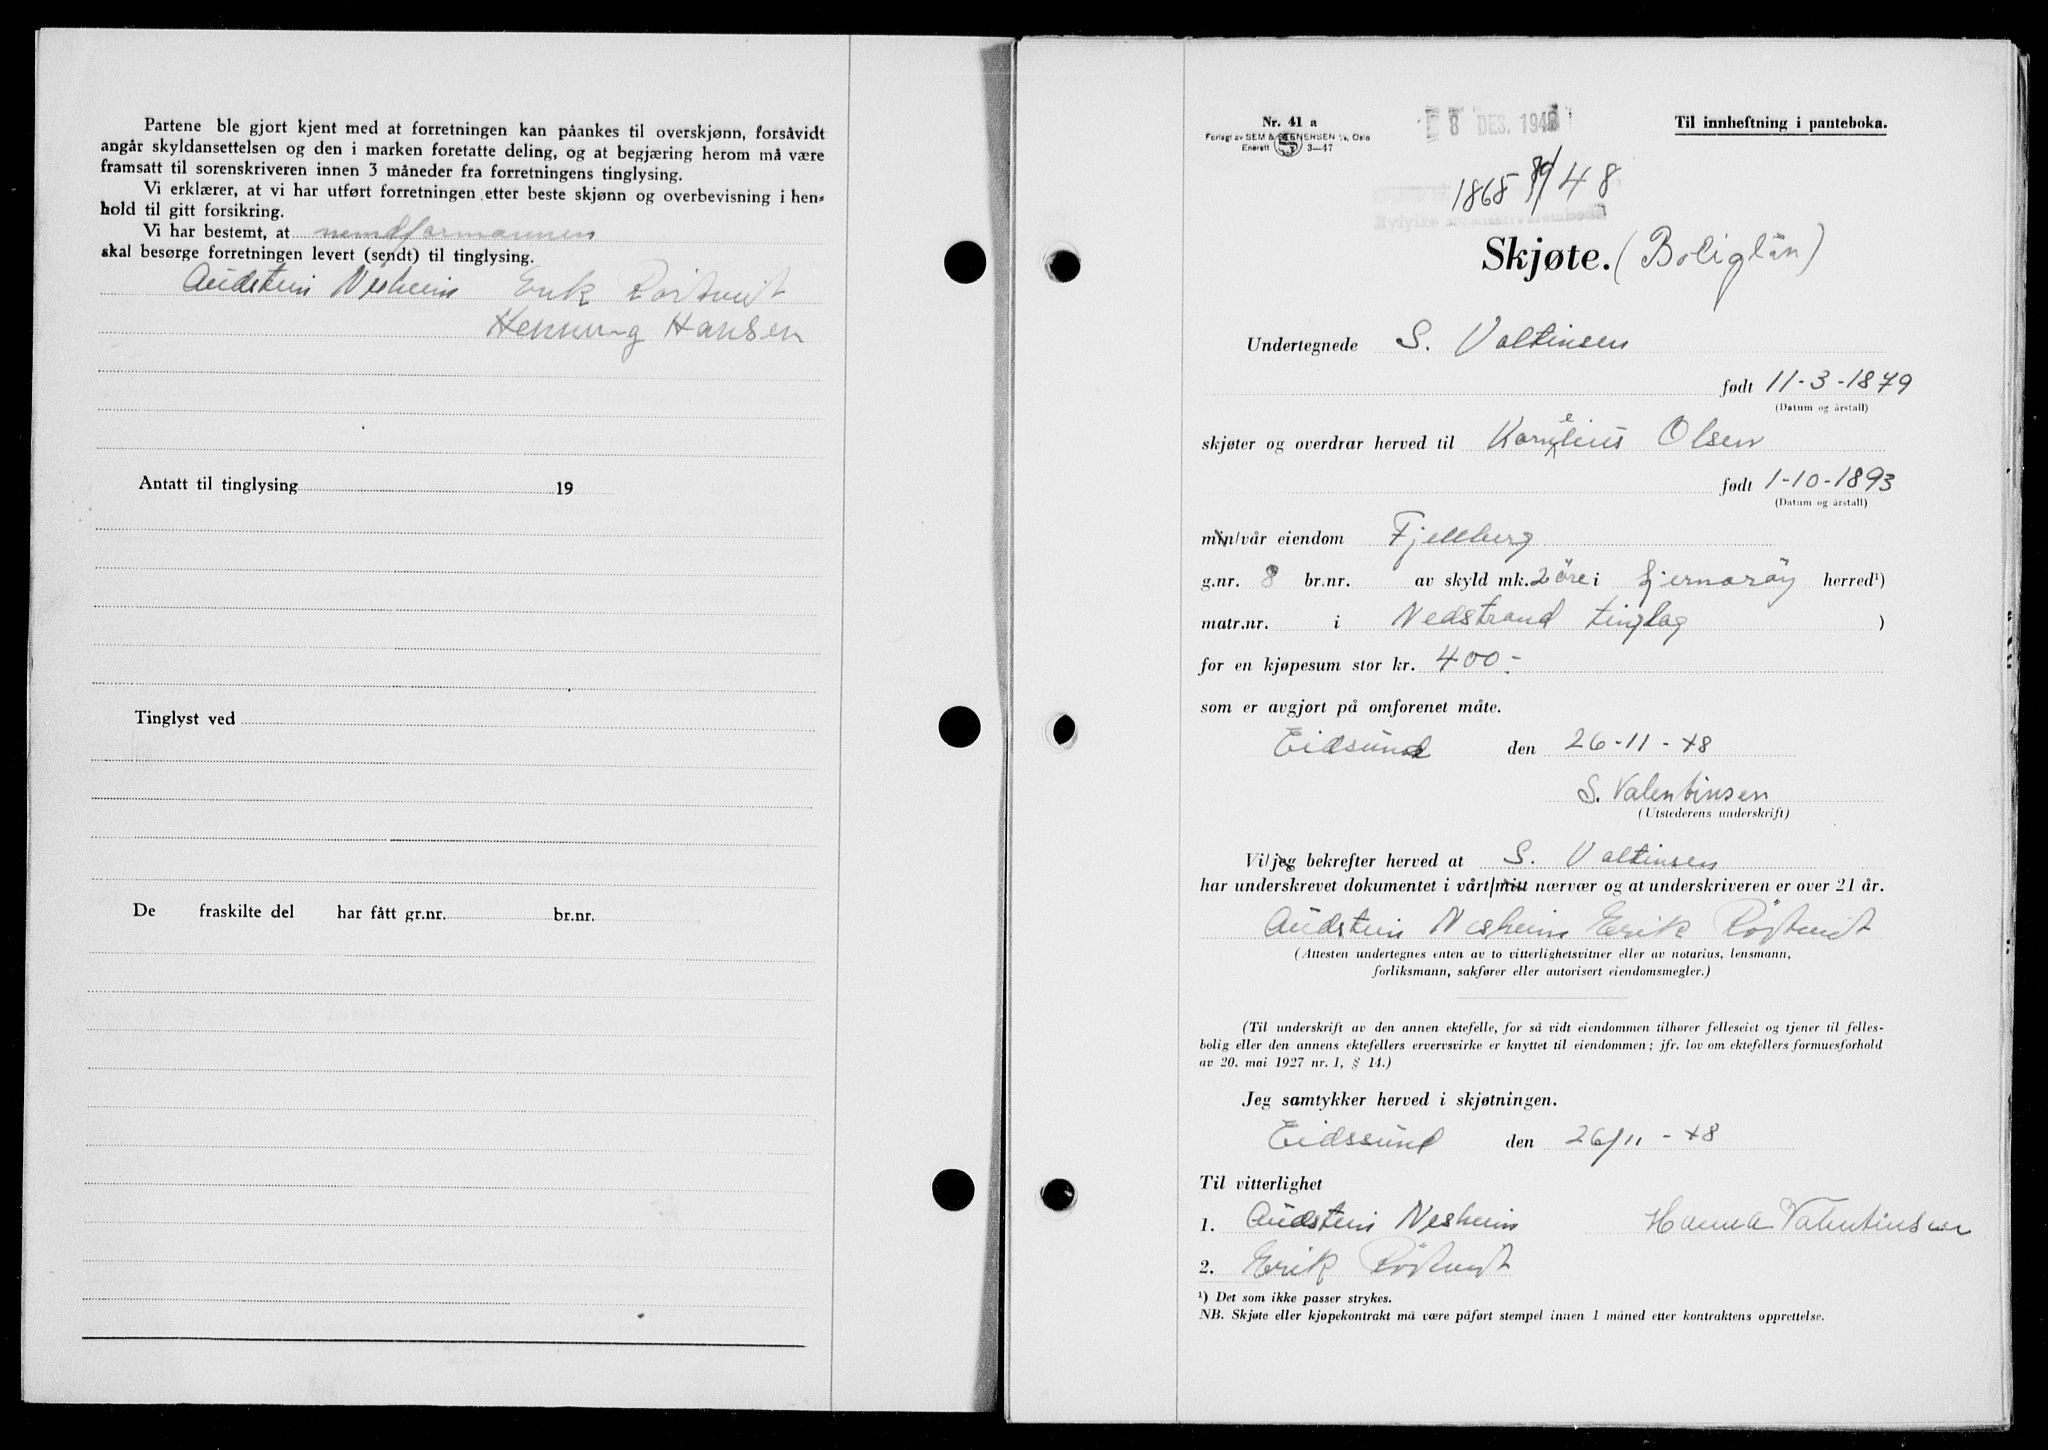 Partene ble gjort kjent med at forretningen kan påankes til overskjønn, forsåvidt
angår skyldansettelsen og den i marken foretatte deling, og at begjæring herom må være
framsatt til sorenskriveren innen 3 måneder fra forretningens tinglysing.
Vi erklærer, at vi har utført forretningen etter beste skjønn og overbevisning i hen-
hold til gitt forsikring.
Vi har bestemt, at nemdformannen
skal besørge forretningen levert (sendt) til tinglysing.
Audstein Nesheim Erik Rödtveit
Henning Hansen
Antatt til tinglysing 19
Tinglyst ved
De fraskilte del har fått gr.nr. br.nr.
Nr. 41 a
8 DES. 1948
Til innheftning i panteboka.
Forlagt av SEM & STENERSEN A/s, Oslo
Enerett 3-47
1868 /48
Ryfylke
Skjøte. (Boliglån)
Undertegnede S. Valtinsen
født 11-3-1879
(Datum og årstall)
skjøter og overdrar herved til Kornelius Olsen
født 1-10-1893
(Datum og årstall)
min/vår eiendom Fjellberg
g.nr. 8 br.nr. av skyld mk. 2 öre i Sjernaröy herred¹)
matr.nr. i Nedstrand tinglag )
for en kjøpesum stor kr. 400-
som er avgjort på omforenet måte.
Eidsund den 26-11-48
S. Valentinsen
(Utstederens underskrift)
Vi/jeg bekrefter herved at S. Valtinsen
har underskrevet dokumentet i vårt/mitt nærvær og at underskriveren er over 21 år.
Audstein Nesheim Erik Rödtveit
(Attesten undertegnes enten av to vitterlighetsvitner eller av notarius, lensmann,
forliksmann, sakfører eller autorisert eiendomsmegler.)
(Til underskrift av den annen ektefelle, for så vidt eiendommen tilhører felleseiet og tjener til felles-
bolig eller den annens ektefellers ervervsvirke er knyttet til eiendommen; jfr. lov om ektefellers formuesforhold
av 20. mai 1927 nr. 1, § 14.)
Jeg samtykker herved i skjøtningen.
Eidssund den 26/11-48
Til vitterlighet
1. Audstein Nesheim Hanna Valentinsen
2. Erik Rödtveit
¹) Det som ikke passer strykes.
NB. Skjøte eller kjøpekontrakt må være påført stempel innen 1 måned etter kontraktens opprettelse.